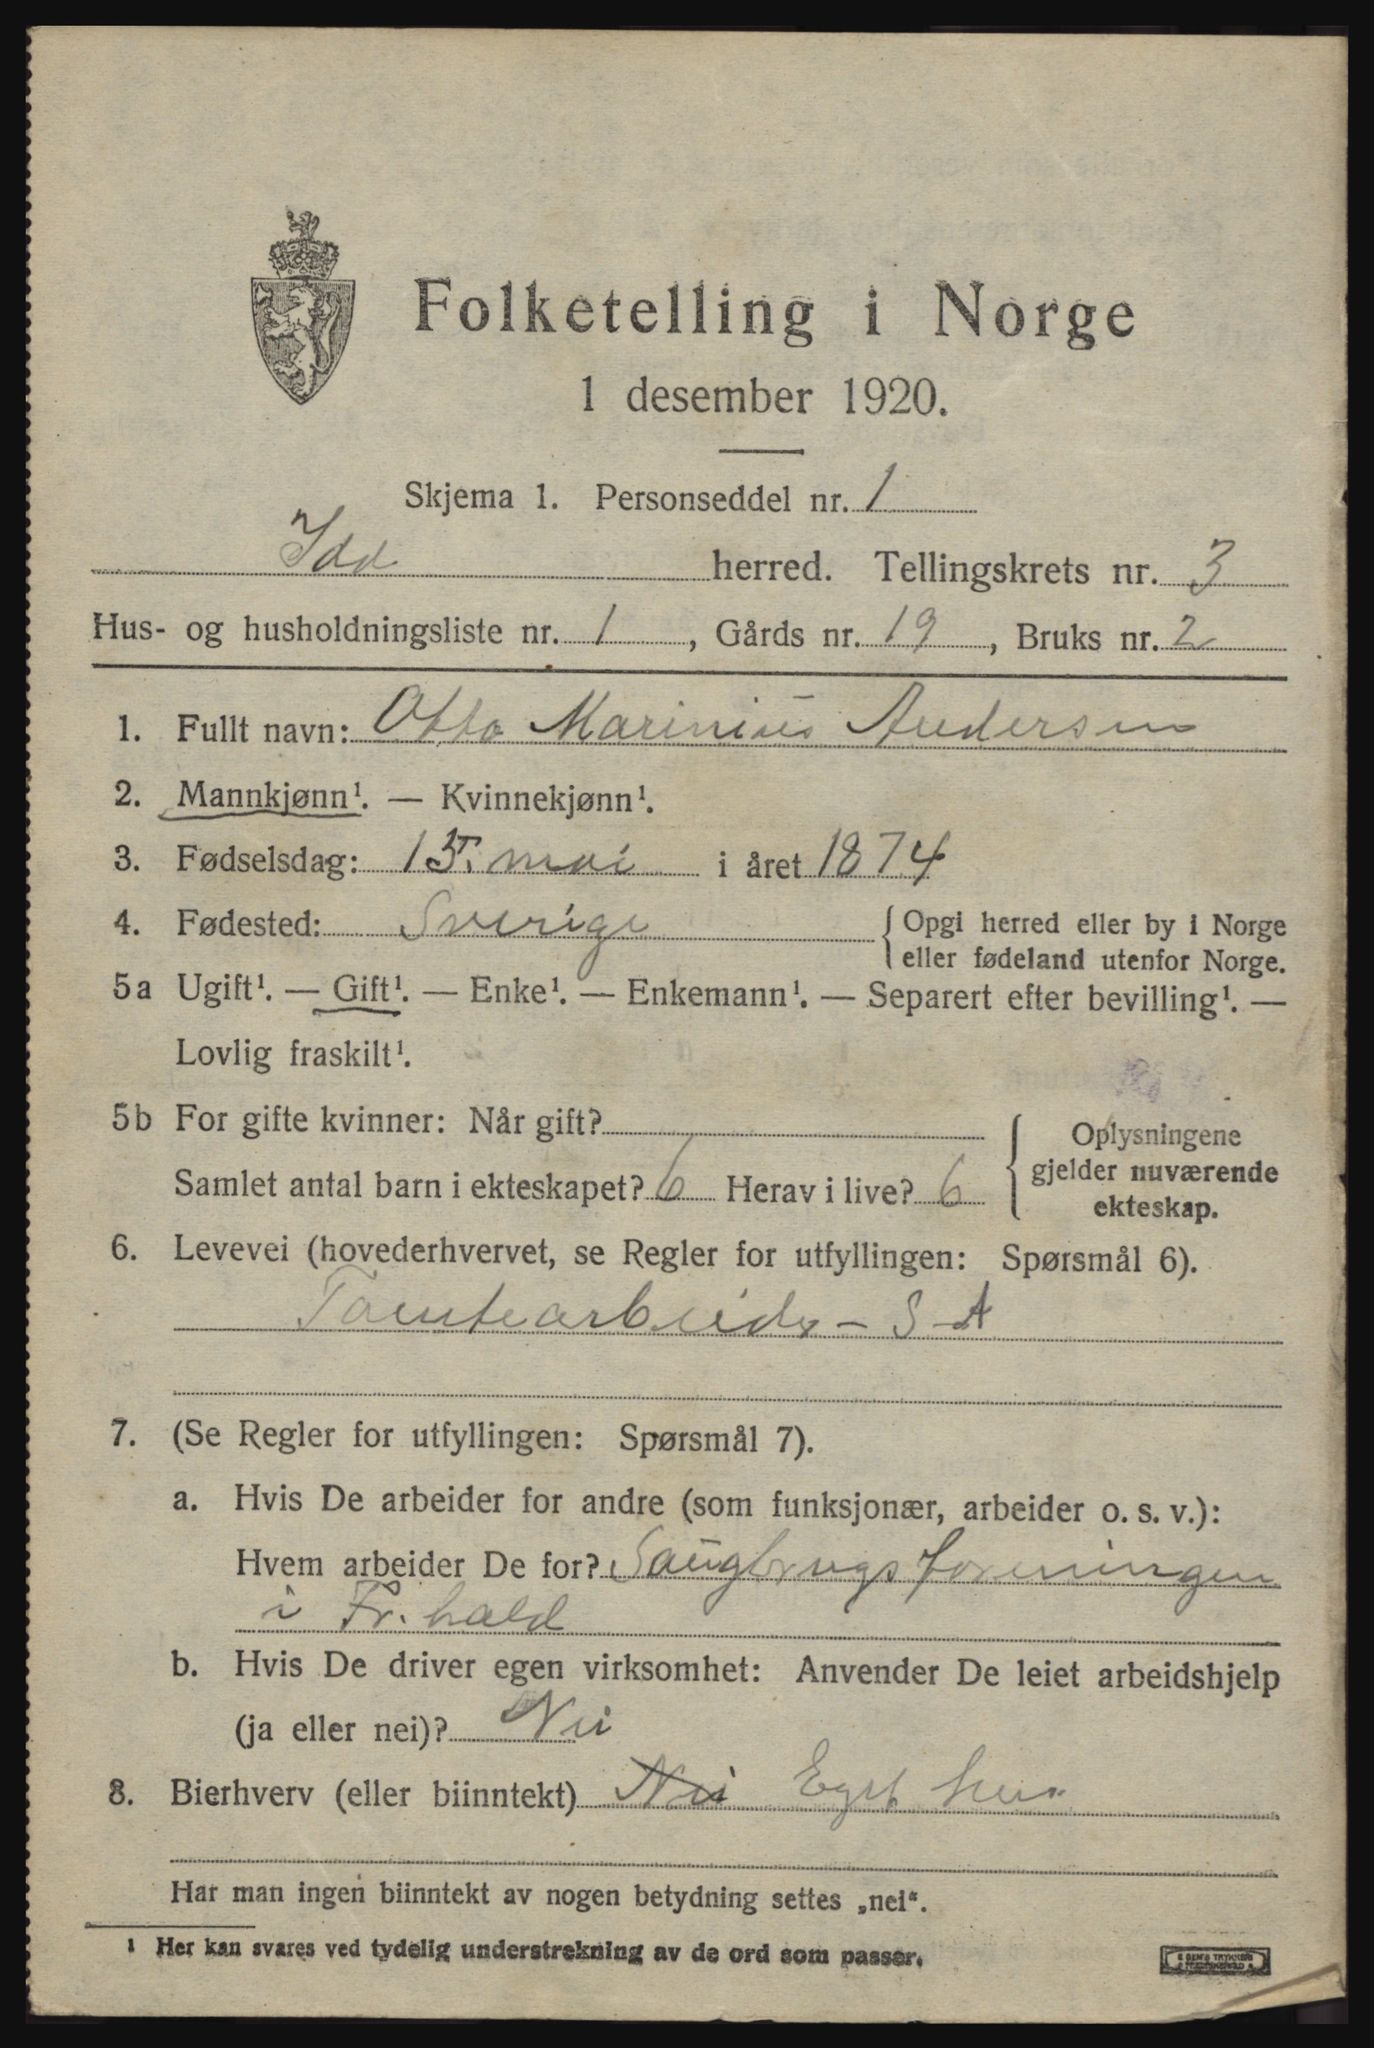 Folketelling i Norge
1 desember 1920.
Skjema 1. Personseddel nr. 1
Idd herred. Tellingskrets nr. 3
Hus- og husholdningsliste nr. 1, Gårds nr. 19, Bruks nr. 2
1. Fullt navn: Otto Marinius Andersen
2. Mannkjønn¹. — Kvinnekjønn¹.
3. Fødselsdag: 15. mai i året 1874
4. Fødested: Sverige { Opgi herred eller by i Norge
eller fødeland utenfor Norge.
5a Ugift¹. — Gift¹. — Enke¹. — Enkemann¹. — Separert efter bevilling¹. —
Lovlig fraskilt¹.
5b For gifte kvinner: Når gift? { Oplysningene
gjelder nuværende
Samlet antal barn i ekteskapet? 6 Herav i live? 6
ekteskap.
6. Levevei (hovederhvervet, se Regler for utfyllingen: Spørsmål 6).
Tomtearbeider - S-A
7. (Se Regler for utfyllingen: Spørsmål 7).
a. Hvis De arbeider for andre (som funksjonær, arbeider o. s. v.):
Hvem arbeider De for? Saugbrugsforeningen
i Fr.hald
b. Hvis De driver egen virksomhet: Anvender De leiet arbeidshjelp
(ja eller nei)? Nei
8. Bierhverv (eller biinntekt) Nei Eget hus
Har man ingen biinntekt av nogen betydning settes „nei“.
¹ Her kan svares ved tydelig understrekning av de ord som passer.